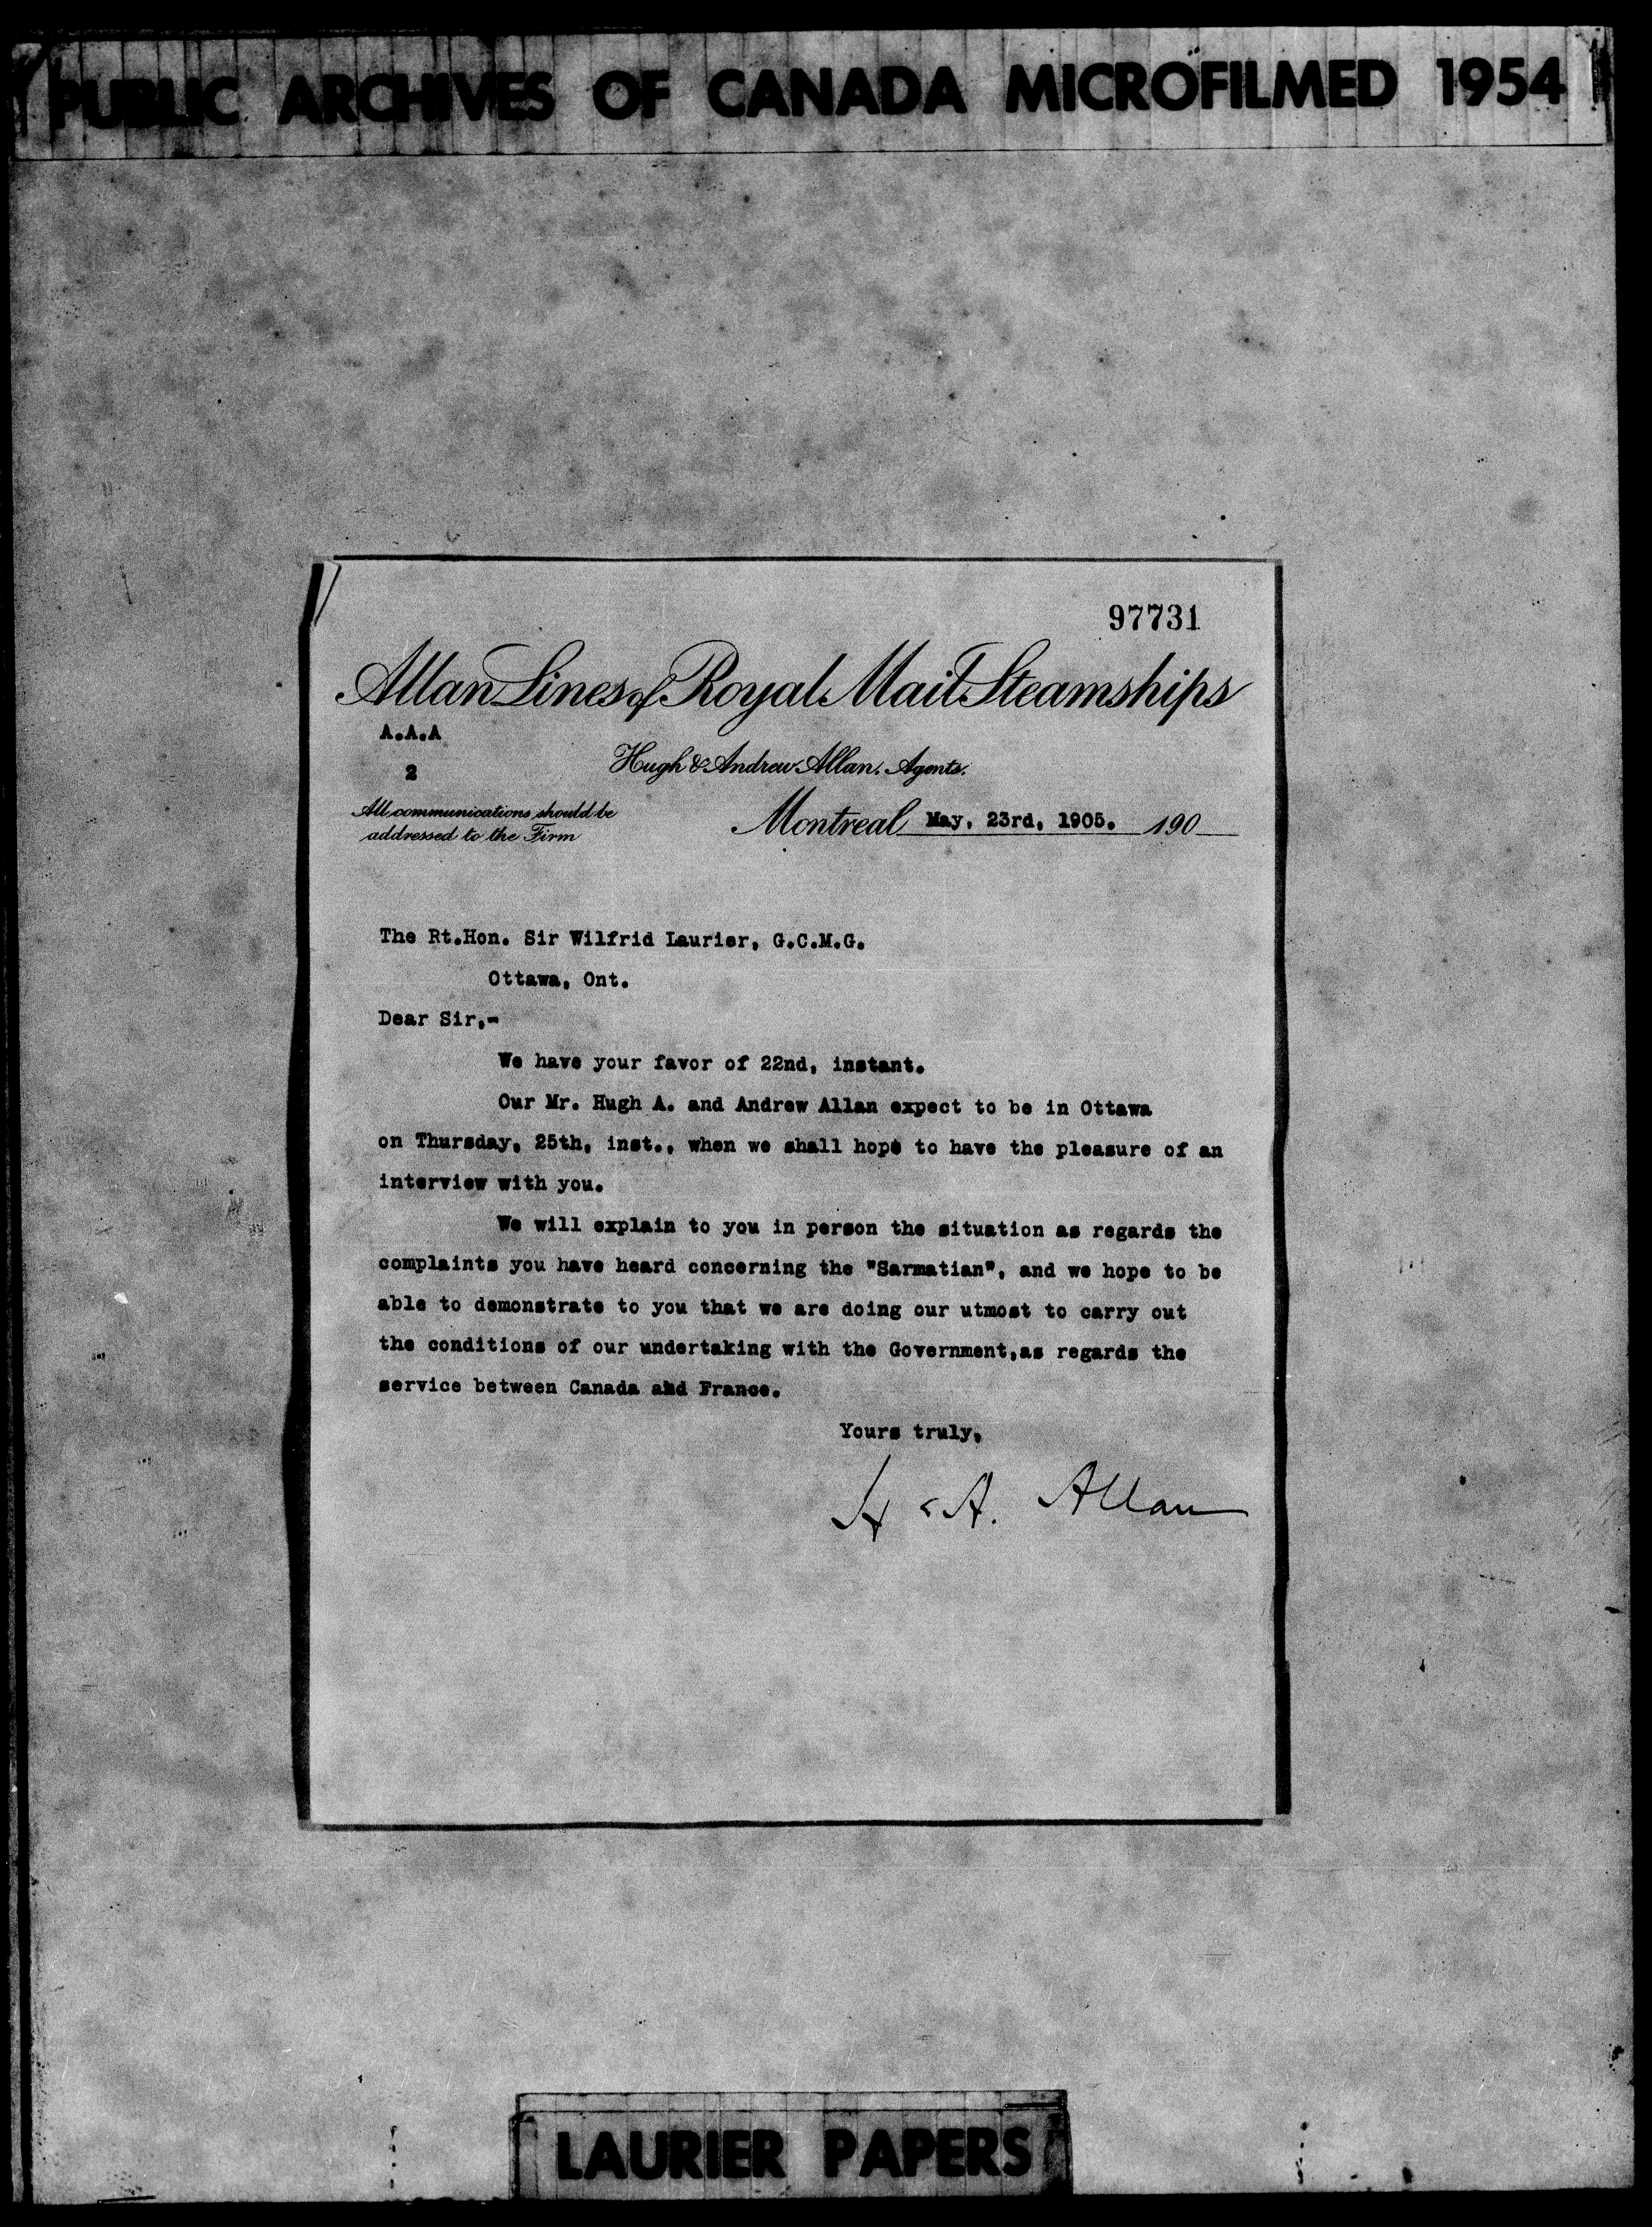 PUBLIC ARCHIVES OF CANADA MICROFILMED 1954
97731
Allan Lines of Royal Mail Steamships
A.A.A
2
Hugh & Andrew Allan. Agents.
All communications should be
addressed to the Firm
Montreal May, 23rd, 1905. 190
The Rt.Hon. Sir Wilfrid Laurier, G.C.M.G.
Ottawa, Ont.
Dear Sir,-
We have your favor of 22nd, instant.
Our Mr. Hugh A. and Andrew Allan expect to be in Ottawa
on Thursday, 25th, inst., when we shall hope to have the pleasure of an
interview with you.
We will explain to you in person the situation as regards the
complaints you have heard concerning the "Sarmatian", and we hope to be
able to demonstrate to you that we are doing our utmost to carry out
the conditions of our undertaking with the Government,as regards the
service between Canada and France.
Yours truly,
H & A. Allan
LAURIER PAPERS